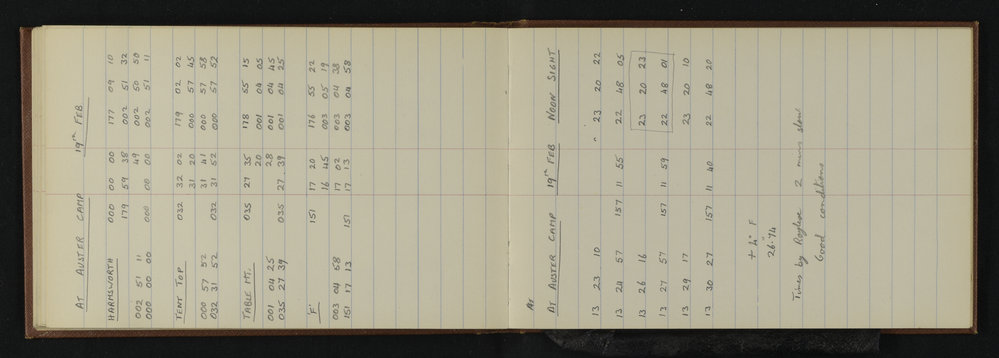 AT AUSTER CAMP 19th FEB
HARMSWORTH 000 00 00 177 09 10
179 59 38 002 51 32
002 51 11 49 002 50 50
000 00 00 000 00 00 002 51 11
TENT TOP 032 32 02 179 02 02
31 20 000 57 45
000 57 52 31 41 000 57 58
032 31 52 032 31 52 000 57 52
TABLE MT. 035 27 35 178 55 15
20 001 04 05
001 04 25 28 001 04 45
035 27 39 035 27 39 001 04 25
'F' 151 17 20 176 55 22
16 45 003 05 19
003 04 58 17 02 003 04 38
151 17 13 151 17 13 003 04 58
AT AUSTER CAMP 19th FEB NOON SIGHT
13 23 10 23 20 22
13 24 57 157 11 55 22 48 05
13 26 16 23 20 23
13 27 57 157 11 59 22 48 01
13 29 17 23 20 10
13 30 27 157 11 40 22 48 20
+ 4° F
26.94
Times by 2 mins slow
Good conditions